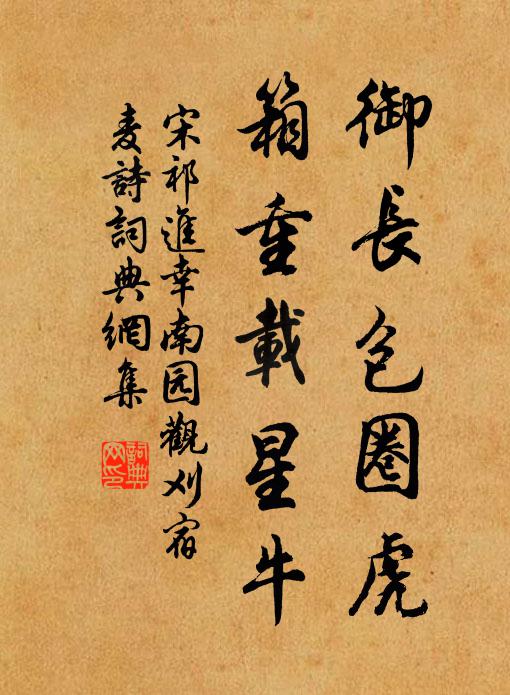 御長包圈虎
箱重載星牛
宋祁進幸南园觀刈宿
麦詩詞典網集
詞典